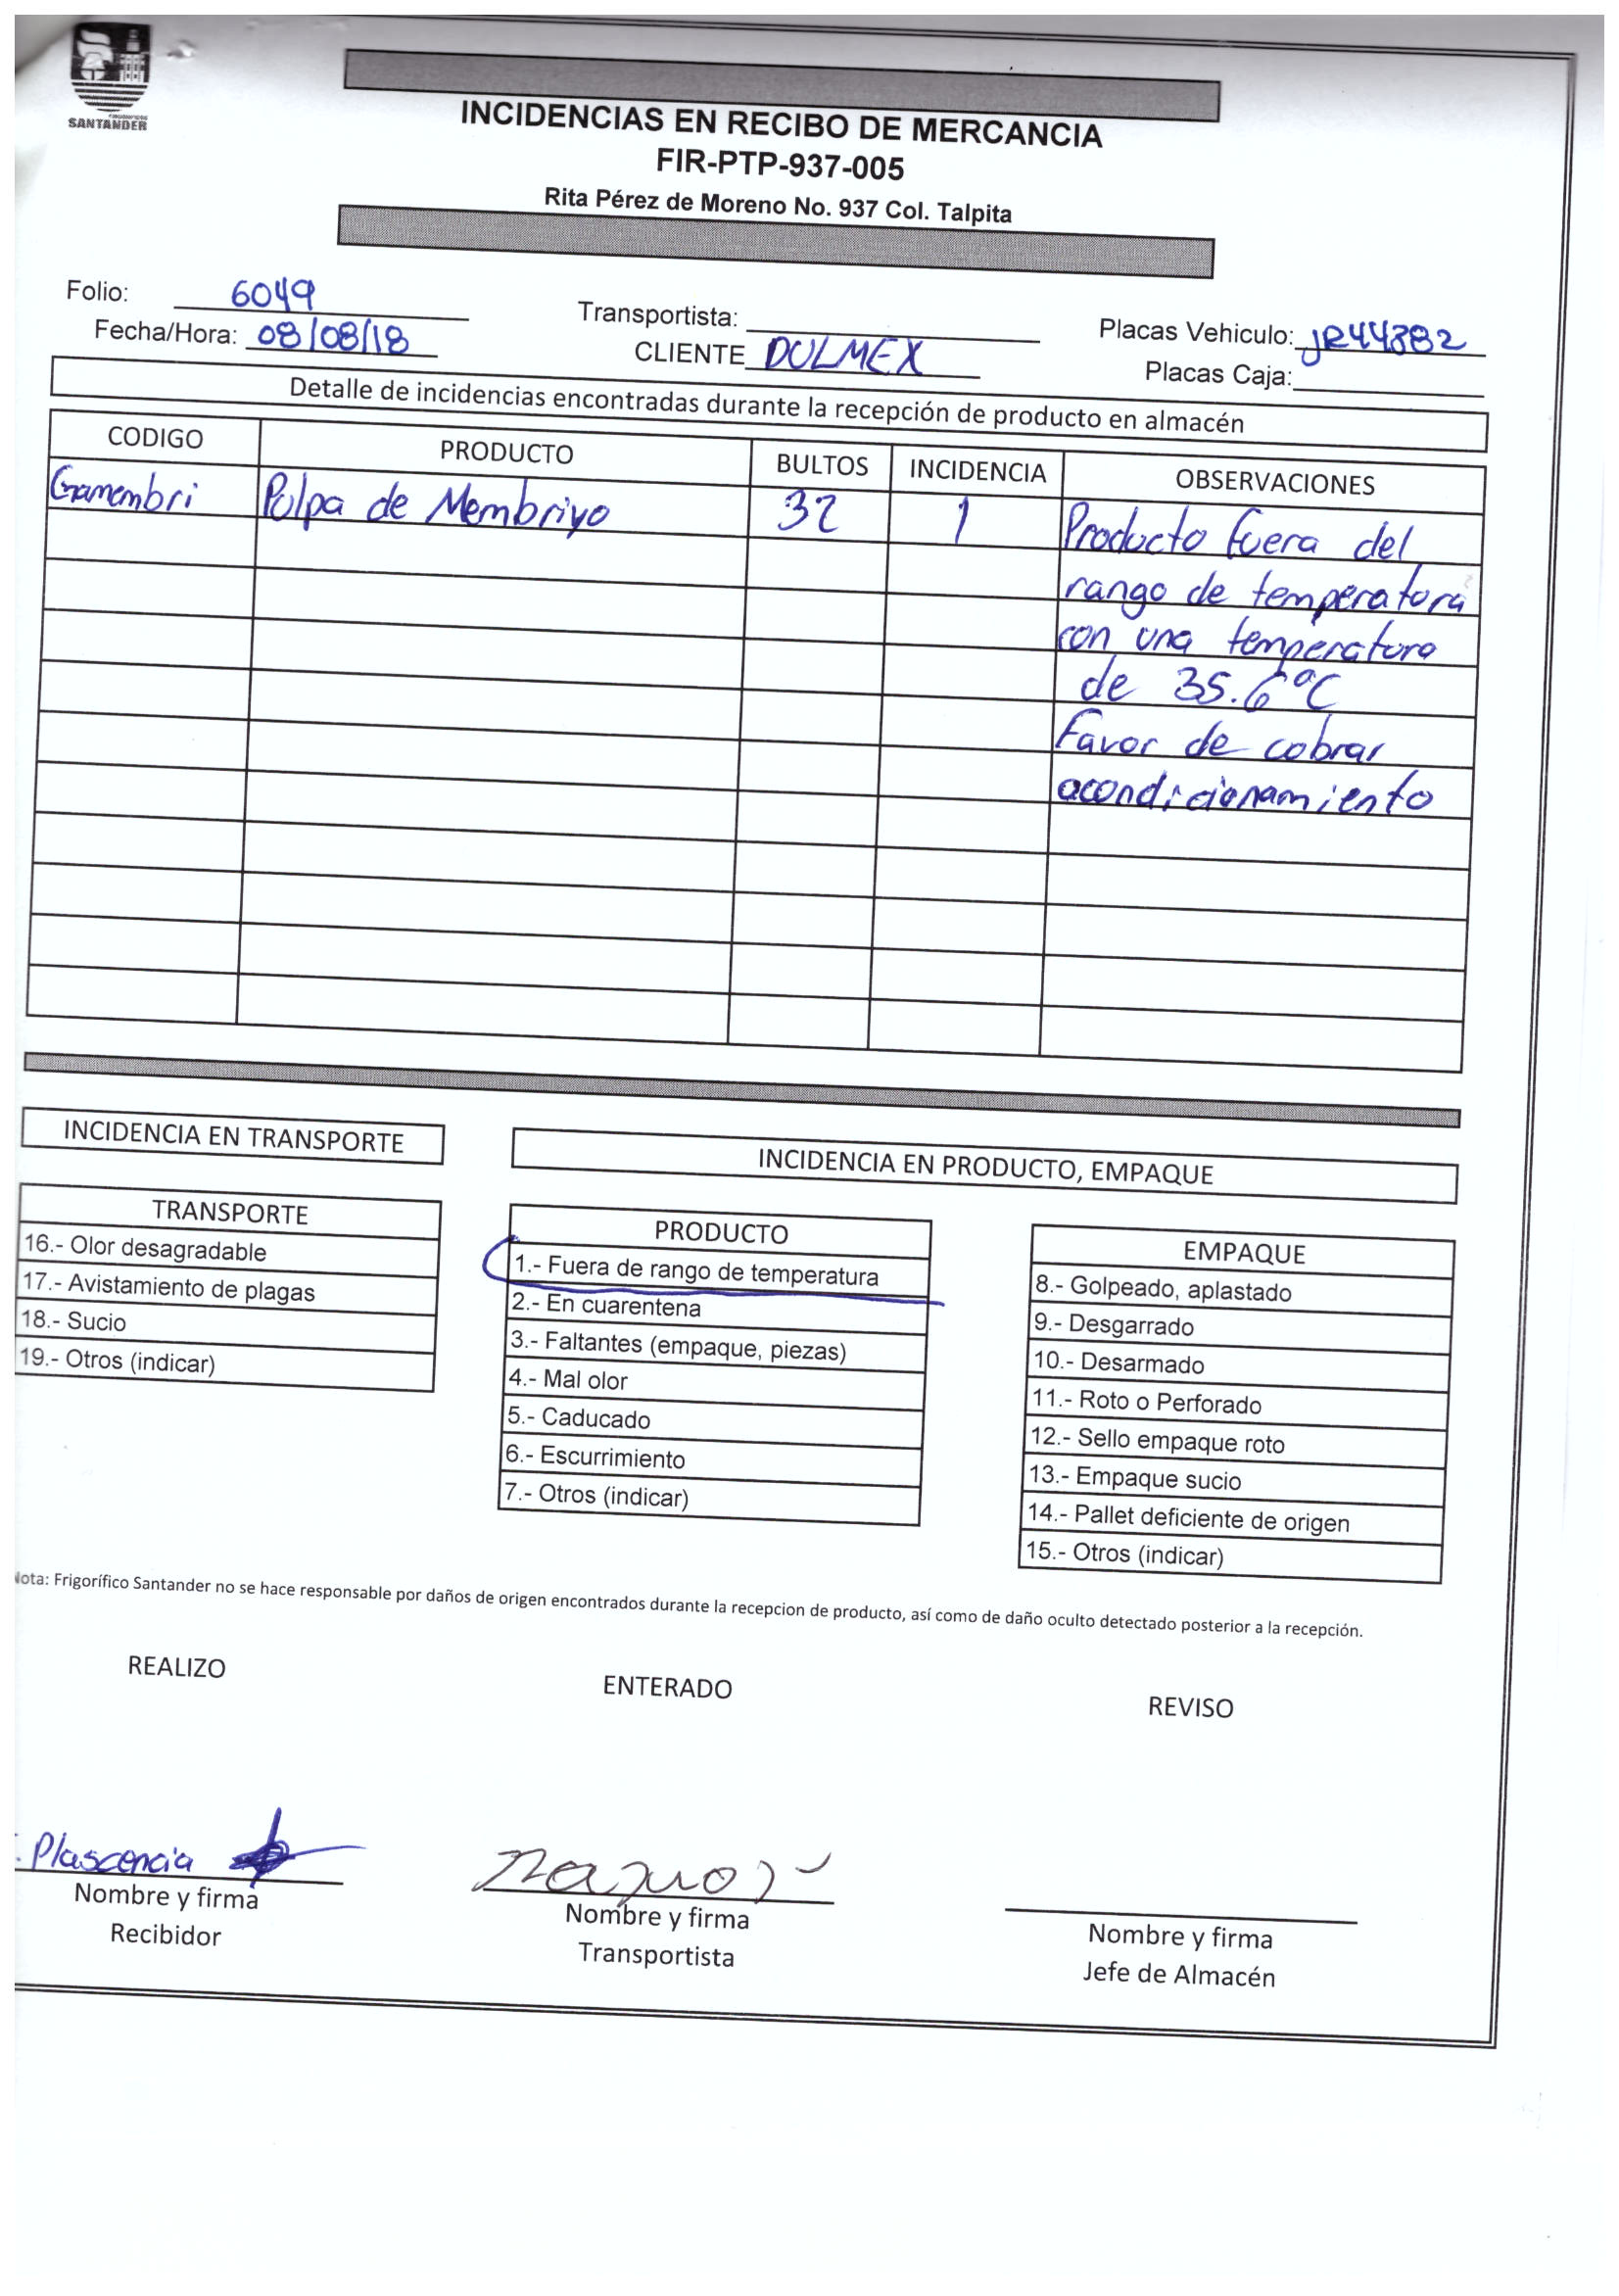 SANTANDER
INCIDENCIAS EN RECIBO DE MERCANCIA
FIR-PTP-937-005
Rita Pérez de Moreno No. 937 Col. Talpita
Folio: 6049 Transportista: Placas Vehiculo: JR44382
Fecha/Hora: 08/08/18 CLIENTE DULMEX Placas Caja:
Detalle de incidencias encontradas durante la recepción de producto en almacén
CODIGO PRODUCTO BULTOS INCIDENCIA OBSERVACIONES
Gamembri Pulpa de Membriyo 32 1 Producto fuera del
rango de temperatura
con una temperatura
de 35.6°C
Favor de cobrar
acondicionamiento
INCIDENCIA EN TRANSPORTE
INCIDENCIA EN PRODUCTO, EMPAQUE
TRANSPORTE
16.- Olor desagradable
17.- Avistamiento de plagas
18.- Sucio
19.- Otros (indicar)
PRODUCTO
1.- Fuera de rango de temperatura
2.- En cuarentena
3.- Faltantes (empaque, piezas)
4.- Mal olor
5.- Caducado
6.- Escurrimiento
7.- Otros (indicar)
EMPAQUE
8.- Golpeado, aplastado
9.- Desgarrado
10.- Desarmado
11.- Roto o Perforado
12.- Sello empaque roto
13.- Empaque sucio
14.- Pallet deficiente de origen
15.- Otros (indicar)
Nota: Frigorífico Santander no se hace responsable por daños de origen encontrados durante la recepcion de producto, así como de daño oculto detectado posterior a la recepción.
REALIZO ENTERADO REVISO
Plascencia
Nombre y firma Nombre y firma Nombre y firma
Recibidor Transportista Jefe de Almacén